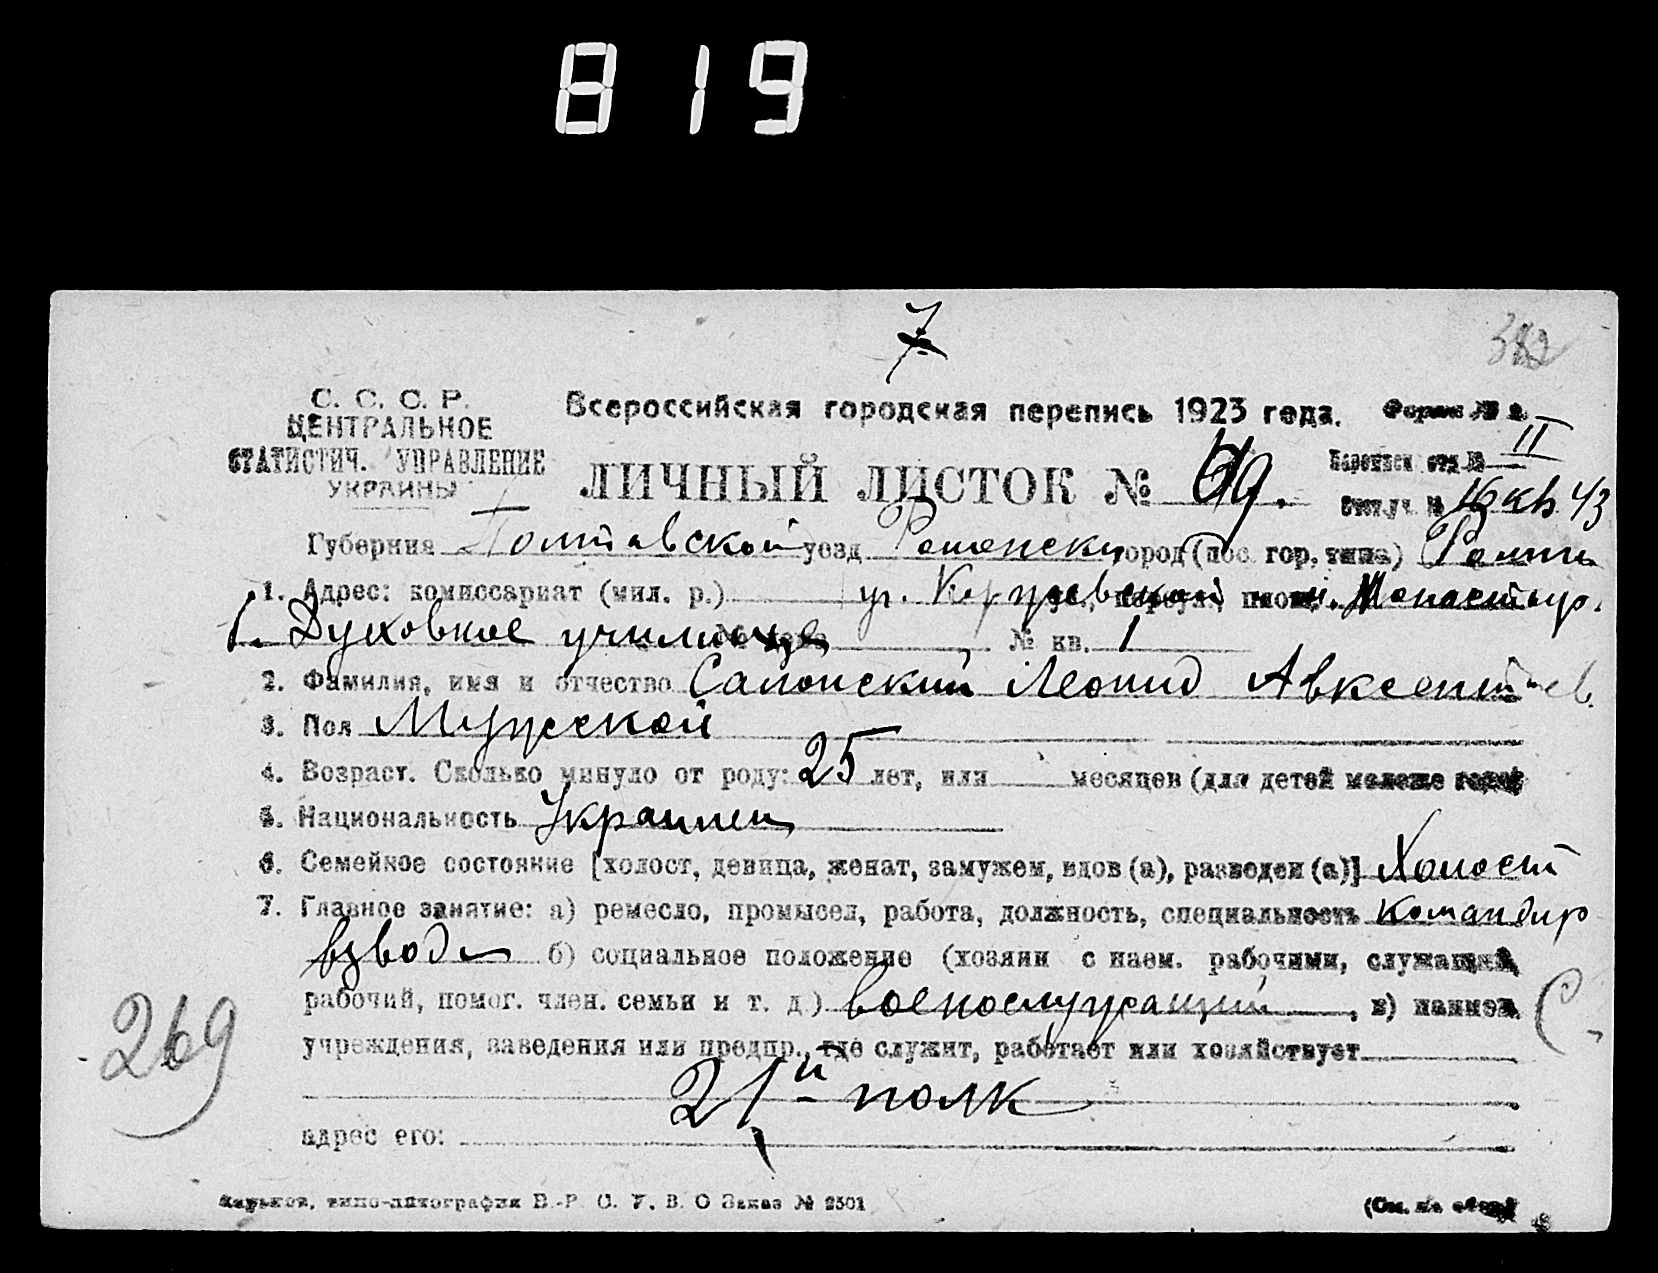 819
7
382
С. С. С. Р.
ЦЕНТРАЛЬНОЕ
СТАТИСТИЧ. УПРАВЛЕНИЕ
УКРАИНЫ
Всероссийская городская перепись 1923 года. Форма №
ЛИЧНЫЙ ЛИСТОК № 69. отд. № II
№ 16 кв 43
Губерния Полтавской уезд Роменский город (пос. гор. типа) Ромны
1. Адрес: комиссариат (мил. р.) ул. площ. Монастыр.
Духовное училище № кв. 1
2. Фамилия, имя и отчество Сапонский Леонид Авксентиев.
3. Пол Мужской
4. Возраст. Сколько минуло от роду: 25 лет, или месяцев (для детей моложе года)
5. Национальность Украинец
6. Семейное состояние [холост, девица, женат, замужем, вдов (а), разведен (а)] Холост
7. Главное занятие: а) ремесло, промысел, работа, должность, специальность командир
взвода б) социальное положение (хозяин с наем. рабочими, служащий,
рабочий, помог. член. семьи и т. д.) военослужащий, в) наимен.
учреждения, заведения или предпр., где служит, работает или хозяйствует
21й полк
адрес его:
269
Харьков, типо-литография В.-Р. С. У. В. О Заказ № 2501
(См. на обор.)